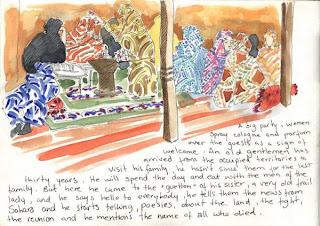 A big party, women
spray cologne and parfum
over the guests as a sign of
welcome. An old gentleman has
arrived from the occupied territories to
visit his family, he hasn't since them for the last
thirty years. He will spend the day and eat with the men of the
family. But here he came to the "guetton" of his sister, a very old frail
lady, and he says hello to everybody, he tells them the news from
Sahara and he starts telling, poesies, about the land, the fight,
the reunion and he mentions the name of all who died.